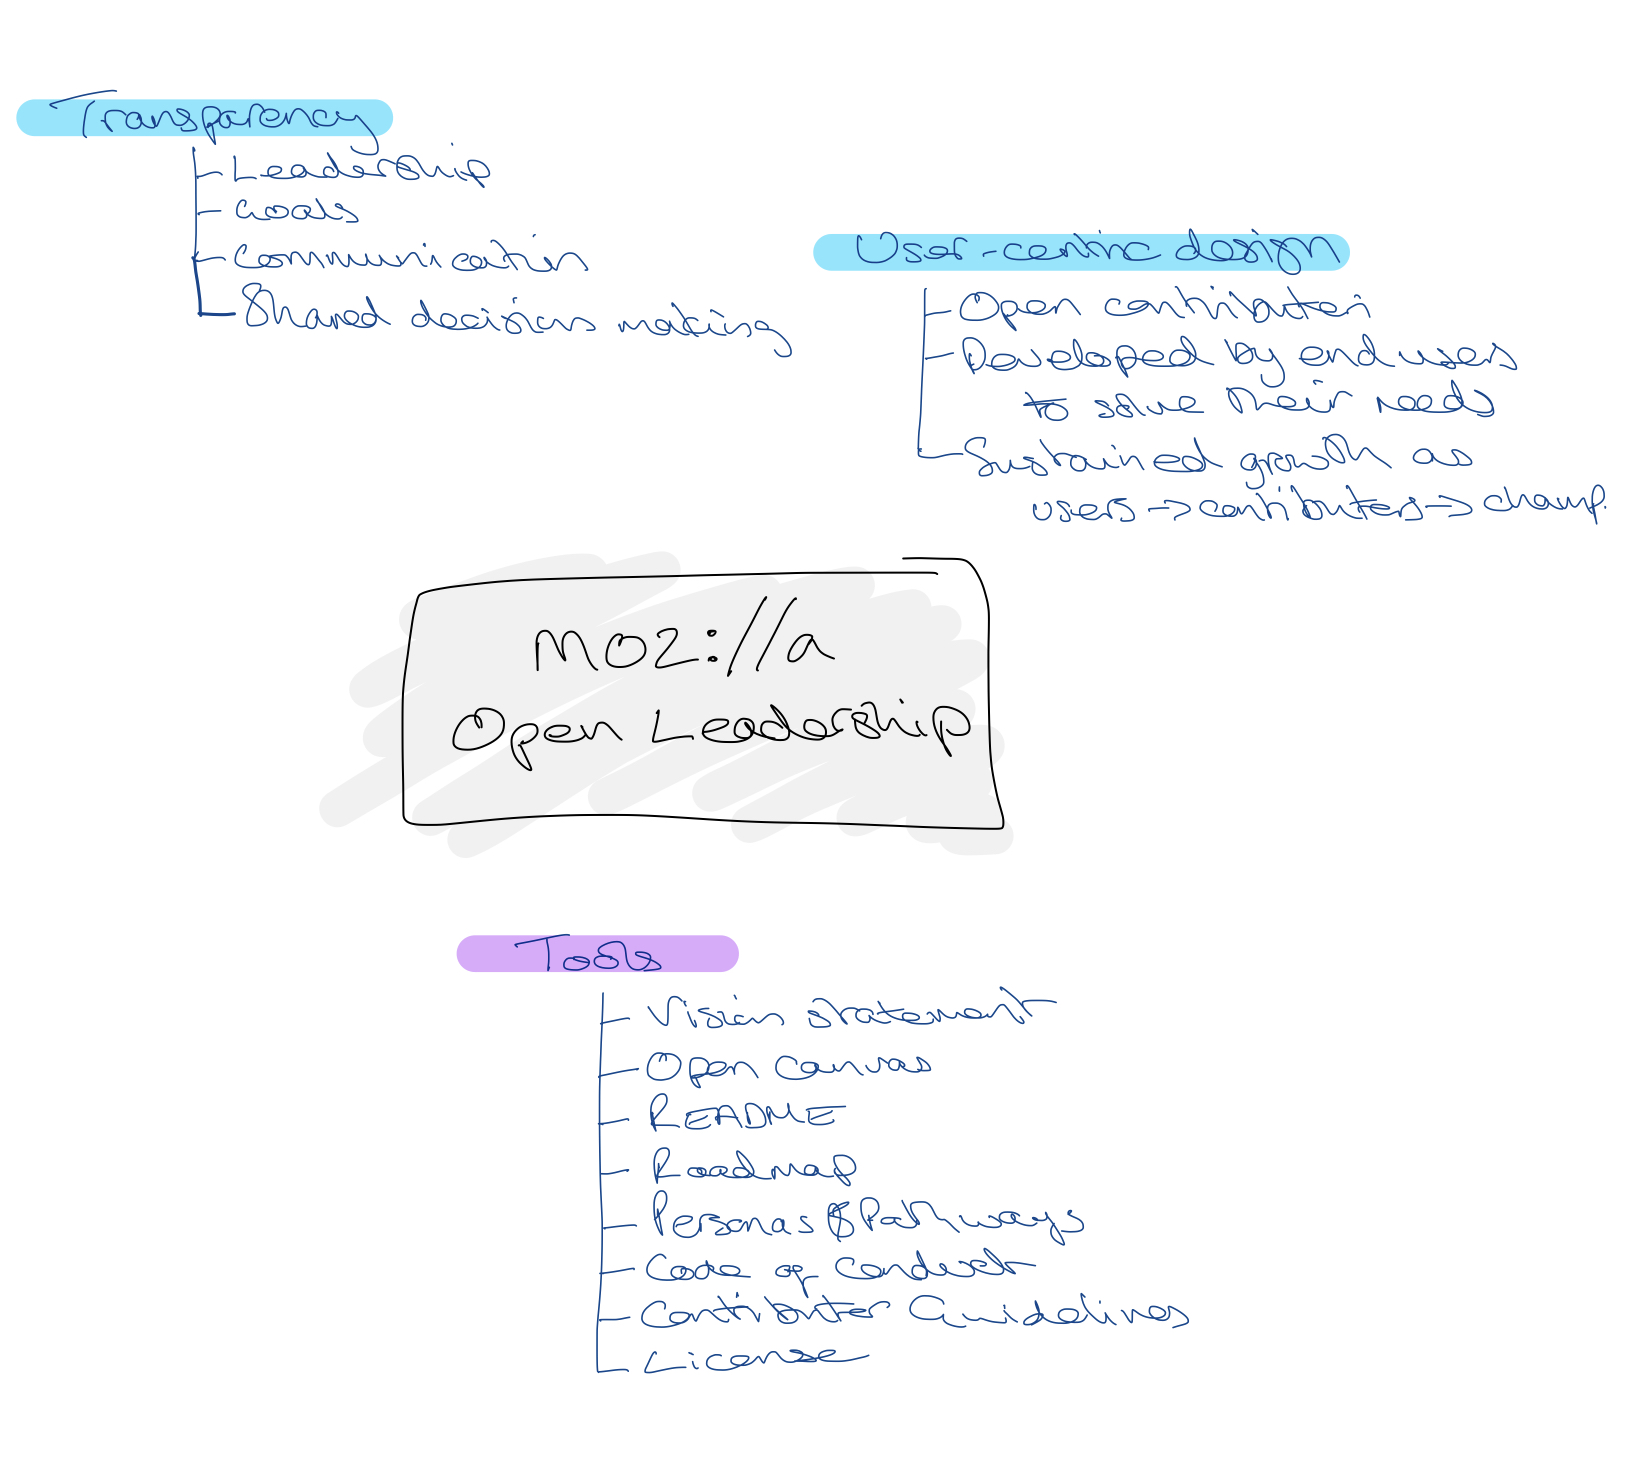 Transparency
Leadership
Goals
Communication
Shared decisions making
User-centric design
Open contributors
Developed by end users
to solve their needs
Sustained growth as
users -> contributers -> champ.
MOZ://a
Open Leadership
Tools
Vision statement
Open canvas
README
Roadmap
Personas & Pathways
Code of conduct
Contributer Guidelines
License